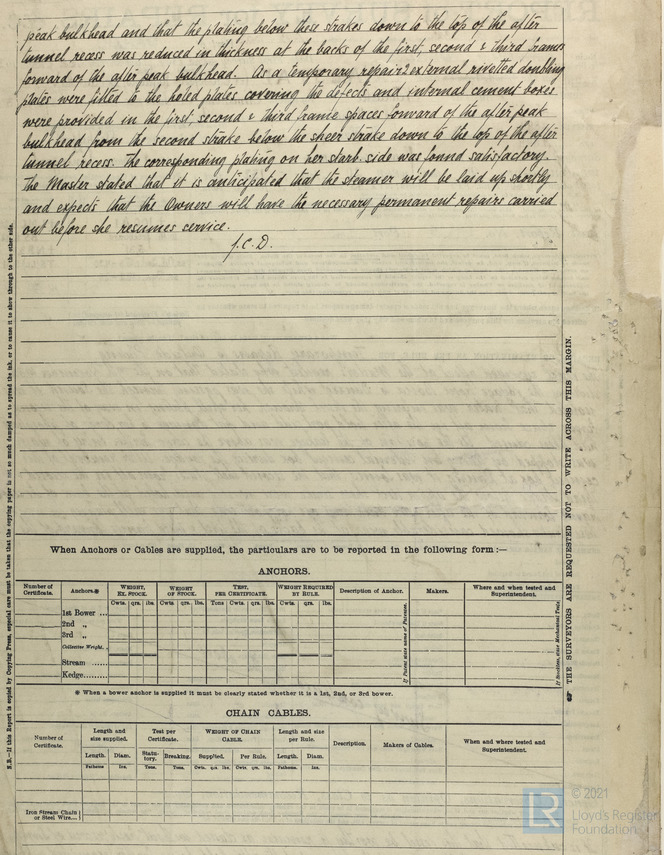 peak bulkhead and that the plating below these strakes down to the top of the after
tunnel recess was reduced in thickness at the backs of the first, second & third frames
forward of the after peak bulkhead. As a temporary repair 2 external rivetted doubling
plates were fitted to the holed plates covering the defects and internal cement boxes
were provided in the first, second & third frame spaces forward of the after peak
bulkhead from the second strake below the sheer strake down to the top of the after
tunnel recess. The corresponding plating on her starb. side was found satisfactory.
The Master stated that it is anticipated that the steamer will be laid up shortly
and expects that the Owners will have the necessary permanent repairs carried
out before she resumes service.
J.C.D.
N.B.—If this Report is copied by Copying Press, especial care must be taken that the copying paper is not so much damped as to spread the ink, or to cause it to show through to the other side.
☛ THE SURVEYORS ARE REQUESTED NOT TO WRITE ACROSS THIS MARGIN.
When Anchors or Cables are supplied, the particulars are to be reported in the following form :—
ANCHORS.
Number of Certificate. Anchors.* WEIGHT, EX. STOCK. WEIGHT OF STOCK. TEST, PER CERTIFICATE. WEIGHT REQUIRED BY RULE. Description of Anchor. Makers. Where and when tested and Superintendent.
Cwts. qrs. lbs. Cwts. qrs. lbs. Tons Cwts. qrs. lbs. Cwts. qrs. lbs.
1st Bower ...
2nd „
3rd „
Collective Weight.
Stream ......
Kedge........
If Patent state name of Patentee.
If Stockless, state Mechanical Tests
* When a bower anchor is supplied it must be clearly stated whether it is a 1st, 2nd, or 3rd bower.
CHAIN CABLES.
Number of Certificate. Length and size supplied. Test per Certificate. WEIGHT OF CHAIN CABLE. Length and size per Rule. Description. Makers of Cables. When and where tested and Superintendent.
Length. Diam. Statutory. Breaking. Supplied. Per Rule. Length. Diam.
Fathoms Ins. Tons. Tons. Cwts. qrs. lbs. Cwts. qrs. lbs. Fathoms. Ins.
Iron Stream Chain
or Steel Wire...
© 2021
Lloyd's Register
Foundation
LR